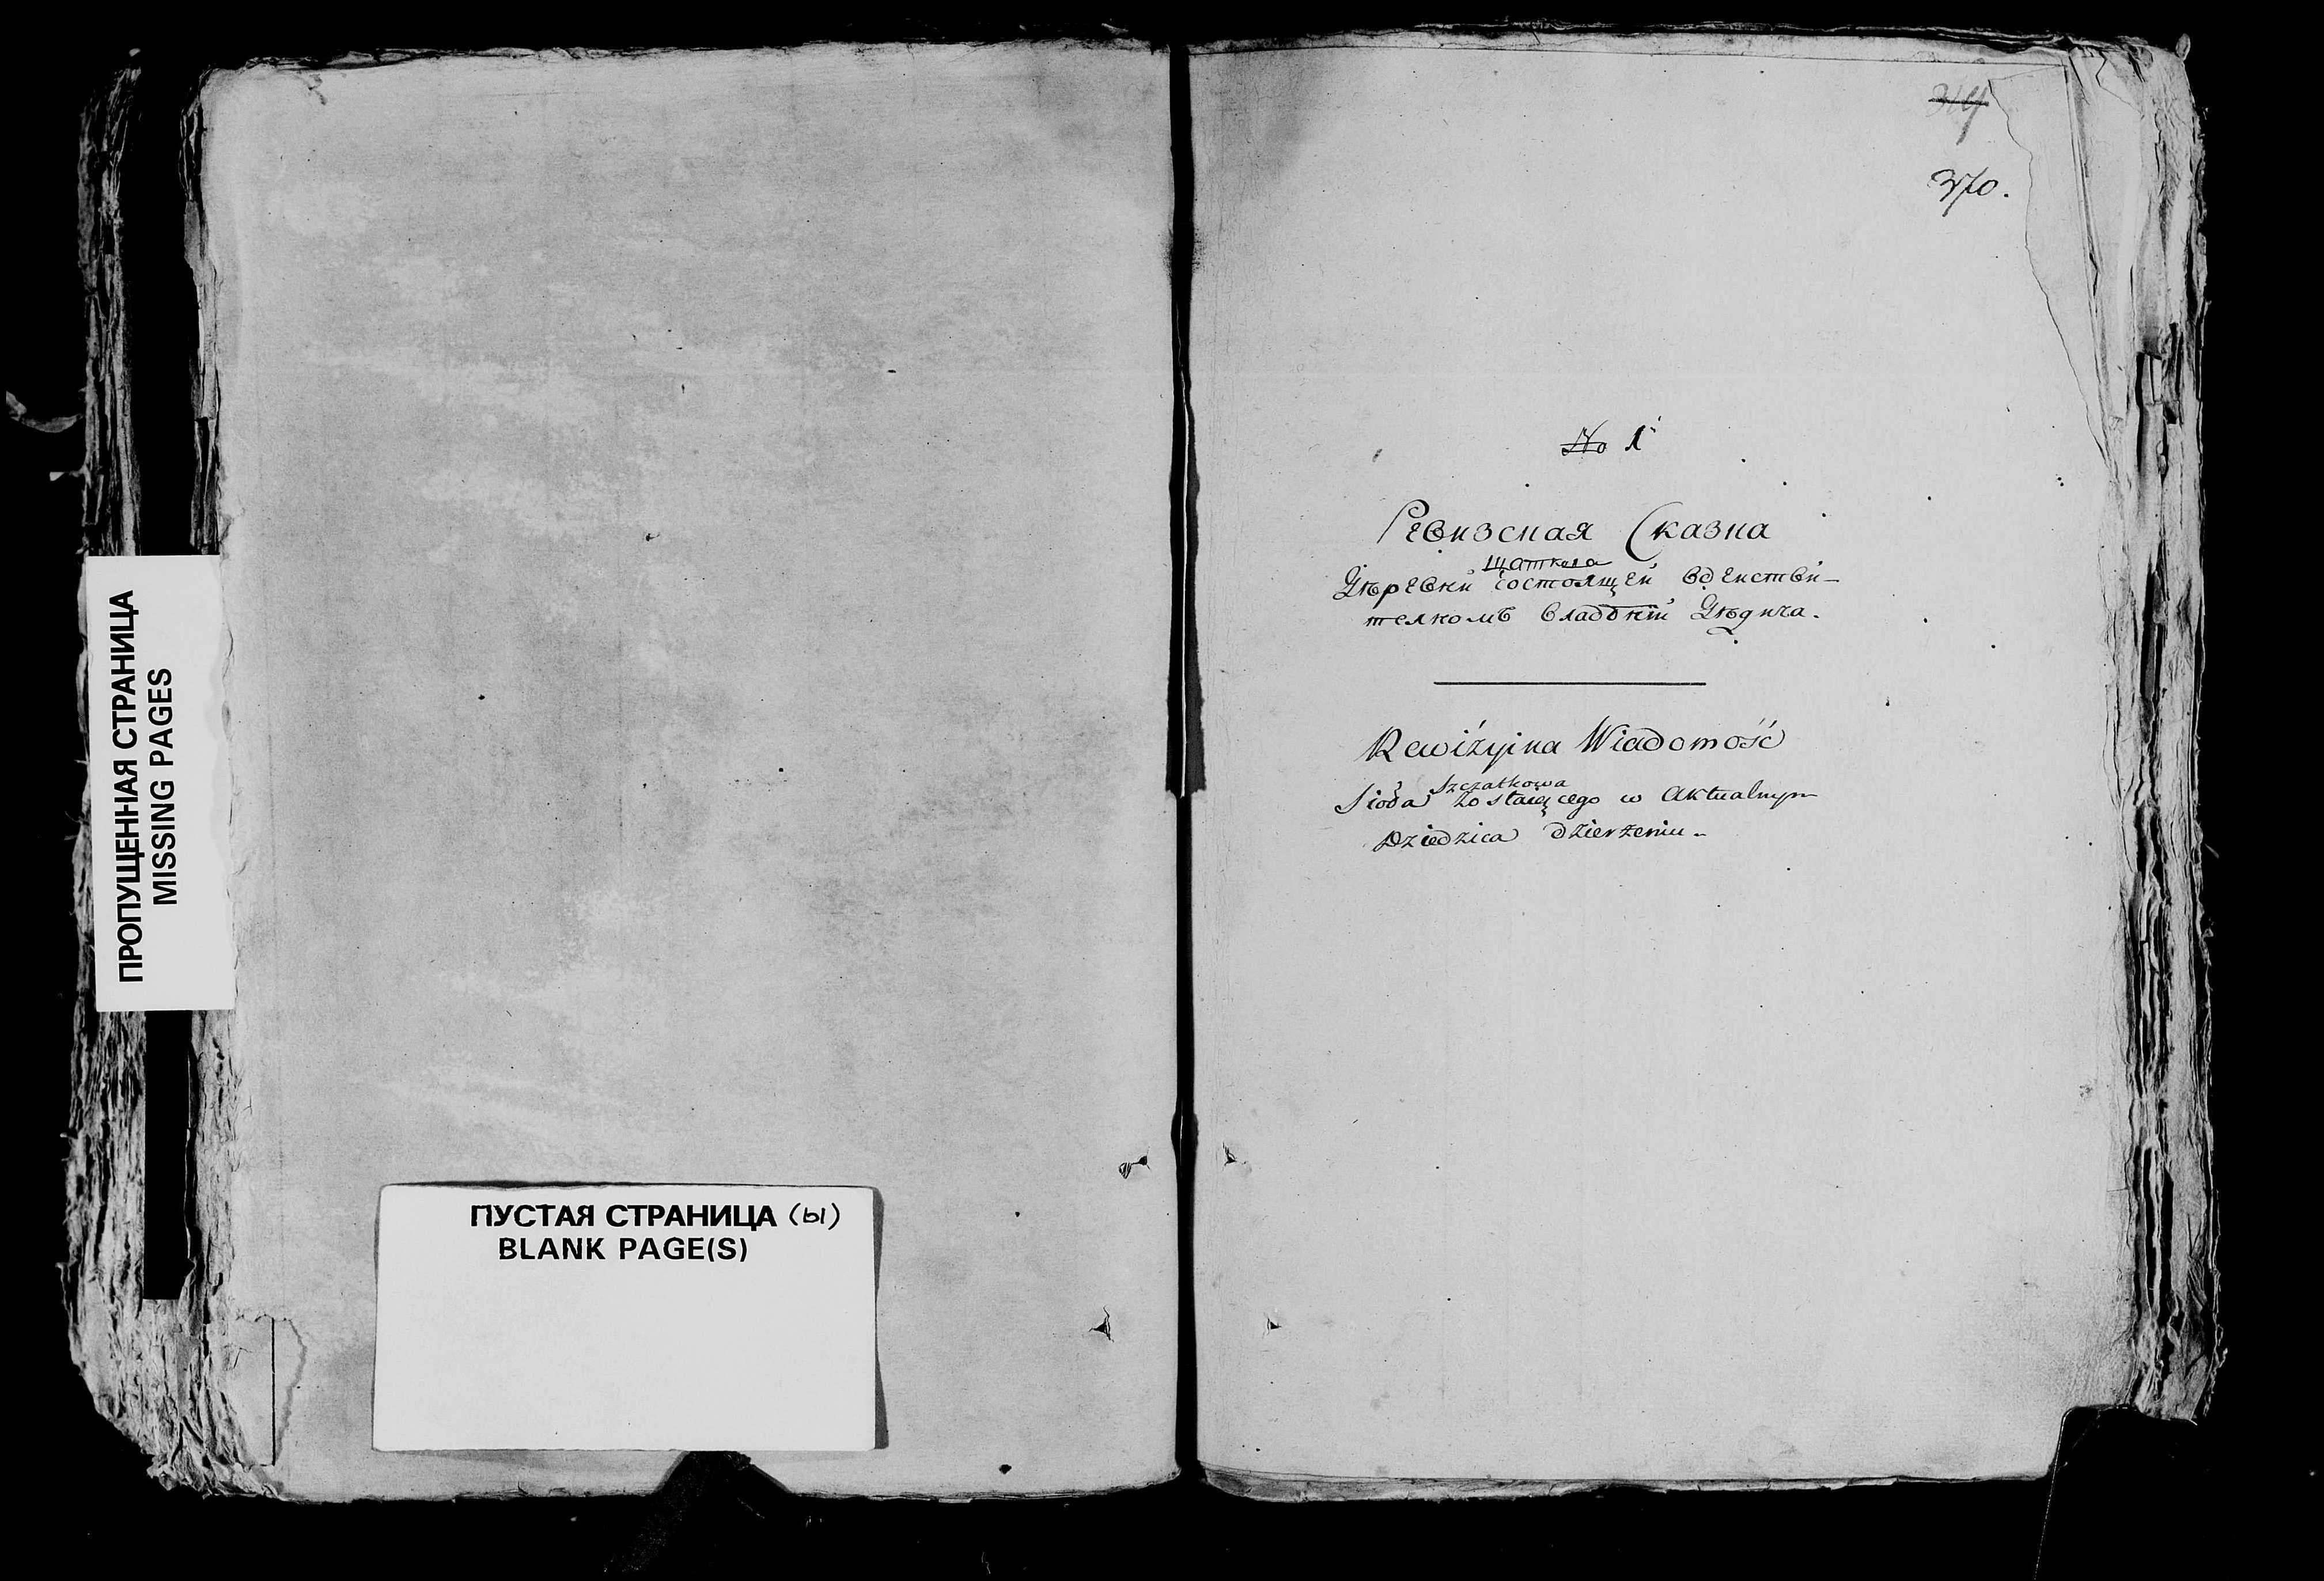 ПРОПУЩЕННАЯ СТРАНИЦА
MISSING PAGES
ПУСТАЯ СТРАНИЦА (ы)
BLANK PAGE(S)
370.
No 1
Ревизсная Сказна
Дѣревни состоящей вдеистви-
телномъ владѣнїи Дѣдича.
Rewizyina Wiadomość
Szczatkowa
Sioła zostaiącego w Aktualnym
Dziedzica dzierzeniu.